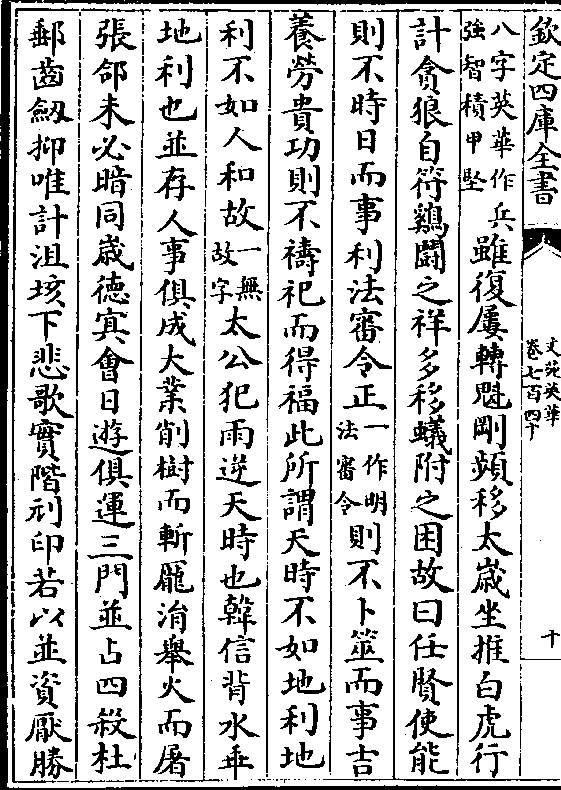 欽定四庫全書
文苑英華
卷七百四十
十
八字英華作
強智積甲堅
兵雖復屢轉魁剛頻移太歳坐推白虎行
計貪狼自符鷄鬭之祥多移蟻附之困故曰任賢使能
則不時日而事利法審令正一作明法審令則不卜筮而事吉
養勞貴功則不禱祀而得福此所謂天時不如地利地
利不如人和故一無故字太公犯雨逆天時也韓信背水乖
地利也並存人事俱成大業削樹而斬龎涓舉火而屠
張郃未必暗同歳德㝠會日遊俱運三門並占四殺杜
郵齒劒抑唯計沮垓下悲歌實階刓印若以並資厭勝